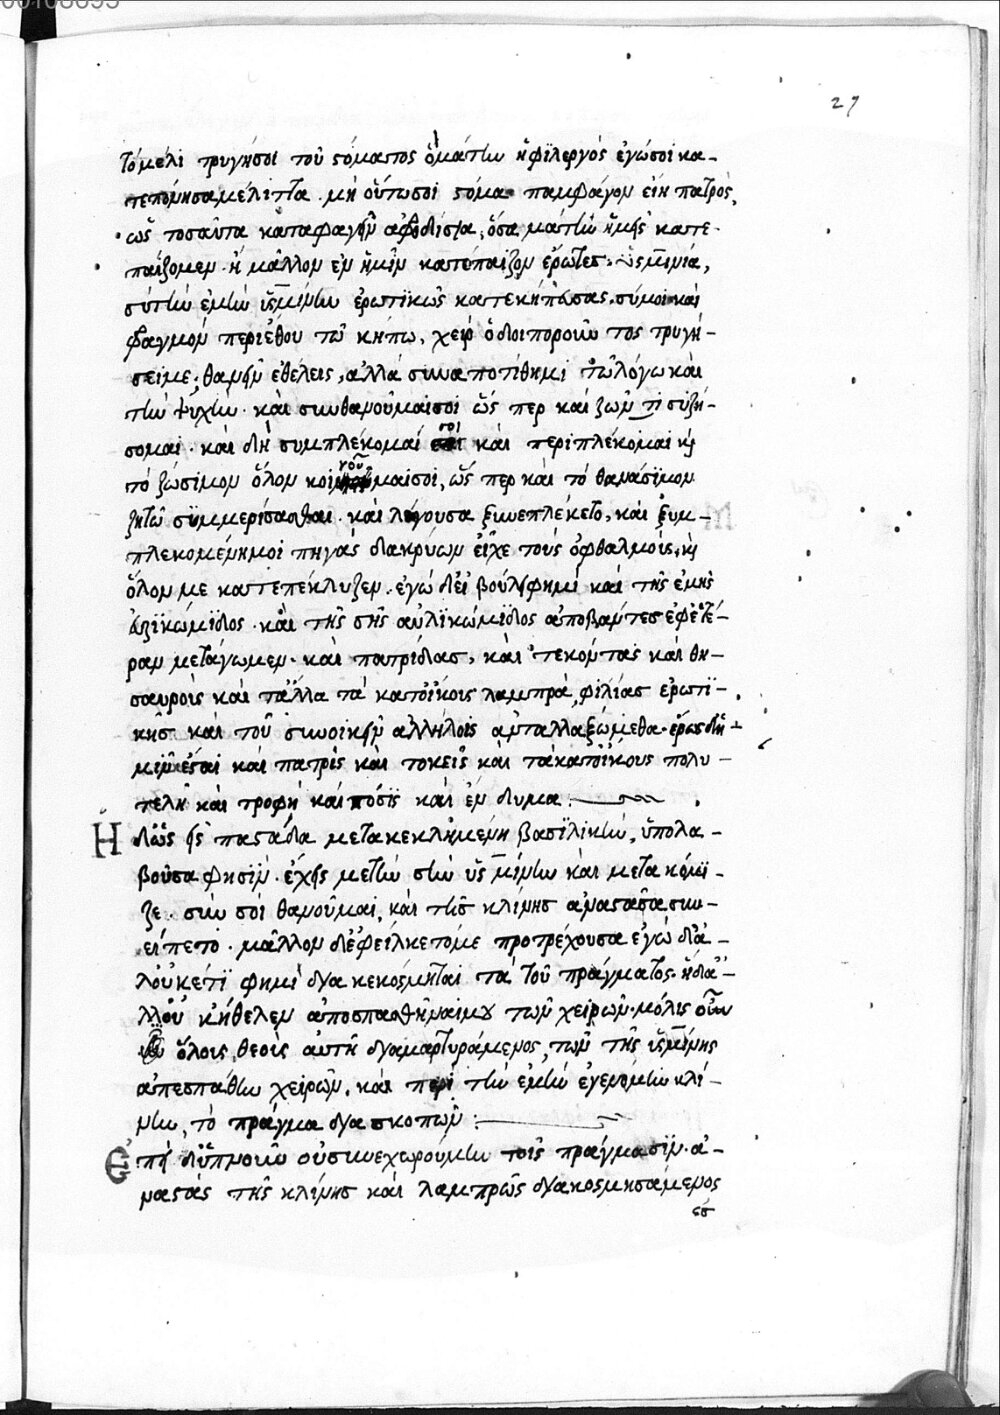 27
τὸ μέλι τρυγήσοι τοῦ στόματος ὃ μάτην ἡ φίλεργὸς ἐγώ σοι κα-
τεπόνησα μέλιττα. μὴ οὕτω σοι στόμα παμφάγον εἴη πατρὸς,
ὡς τοσαῦτα καταφαγεῖν ἀφροδίσια, ὅσα μάτην ἡμεῖς κατε-
παίζομεν. ἢ μᾶλλον ἐν ἡμῖν κατέπαιζον ἔρωτες. ὑσμινία,
σὺ τὴν ἐμὴν ὑσμίνην ἐρωτικῶς κατεκήπωσας, σύ μοι καὶ
φραγμὸν περιέθου τῷ κήπῳ, χεὶρ ὁδοιπόρου τὸς τρυγή-
σει με; θανεῖν ἐθέλεις, ἀλλὰ συναποτίθημι τῷ λόγῳ καὶ
τὴν ψυχὴν. καὶ συνθανοῦμαί σοι ὥς περ καὶ ζῶν τι συζή-
σομαι. καὶ δὴ συμπλέκομαί σοι καὶ περιπλέκομαι κ
τὸ ζώσιμον ὅλον κοινοῦμαί σοι, ὥς περ καὶ τὸ θανάσιμον
ζητῶ συμμερίσασθαι. καὶ λέγουσα ξυνεπλέκετο, καὶ ξυμ-
πλεκομένη μοι πηγὰς δακρύων εἶχε τοὺς ὀφθαλμοὺς, κ
ὅλον με κατεπέκλυζεν. ἐγὼ δ' εἰ βούλει φημὶ καὶ τῆς ἐμῆς
εὐρυκώμιδος. καὶ τῆς σῆς αὐλικώμιδος ἀποβάντες ἐφ' ἑτέ-
ραν μετάγωμεν. καὶ πατρίδας, καὶ τεκόντας καὶ θη-
σαυροὺς καὶ τἄλλα τὰ κατοίκους λαμπρὰ, φιλίας ἐρωτι-
κῆς καὶ τοῦ συνοικεῖν ἀλλήλοις ἀνταλλαξώμεθα. ἔρως δὴ
μῖν ἔσται καὶ πατρὶς καὶ τοκεῖς καὶ τὰ κατοίκους πολυ-
τελῆ καὶ τροφὴ καὶ πόσις καὶ ἔνδυμα.
Ἡ δ' ὡς εἰς παστάδα μετακεκλημένη βασιλικὴν, ὑπολα-
βοῦσα φησὶν. ἔχεις μὲ τὴν σὴν ὑσμίνην καὶ μετακόμι-
ζε. σὺν σοὶ θανοῦμαι, καὶ τῆς κλίνης ἀναστᾶσα συν-
είπετο. μᾶλλον δ' ἐφείλκετό με προτρέχουσα ἐγὼ δ' ἀλ-
λ' οὐκέτι φημὶ διακεκόσμηται τὰ τοῦ πράγματος. ἡ δ' ἀλ-
λ' οὐκ ἤθελεν ἀποσπασθῆναί μου τῶν χειρῶν. μόλις οὖν
ὅλοις θεοῖς αὐτῇ διαμαρτυράμενος, τῶν τῆς ὑσμίνης
ἀπεσπάσθην χειρῶν. καὶ περὶ τὴν ἐμὴν ἐγενόμην κλί-
νην, τὸ πρᾶγμα διασκοπῶν
Ἐπὴ δ' ὕπνουν οὐ συνεχωρούμην τοῖς πράγμασιν. ἀ-
ναστὰς τῆς κλίνης καὶ λαμπρῶς διακοσμησάμενος